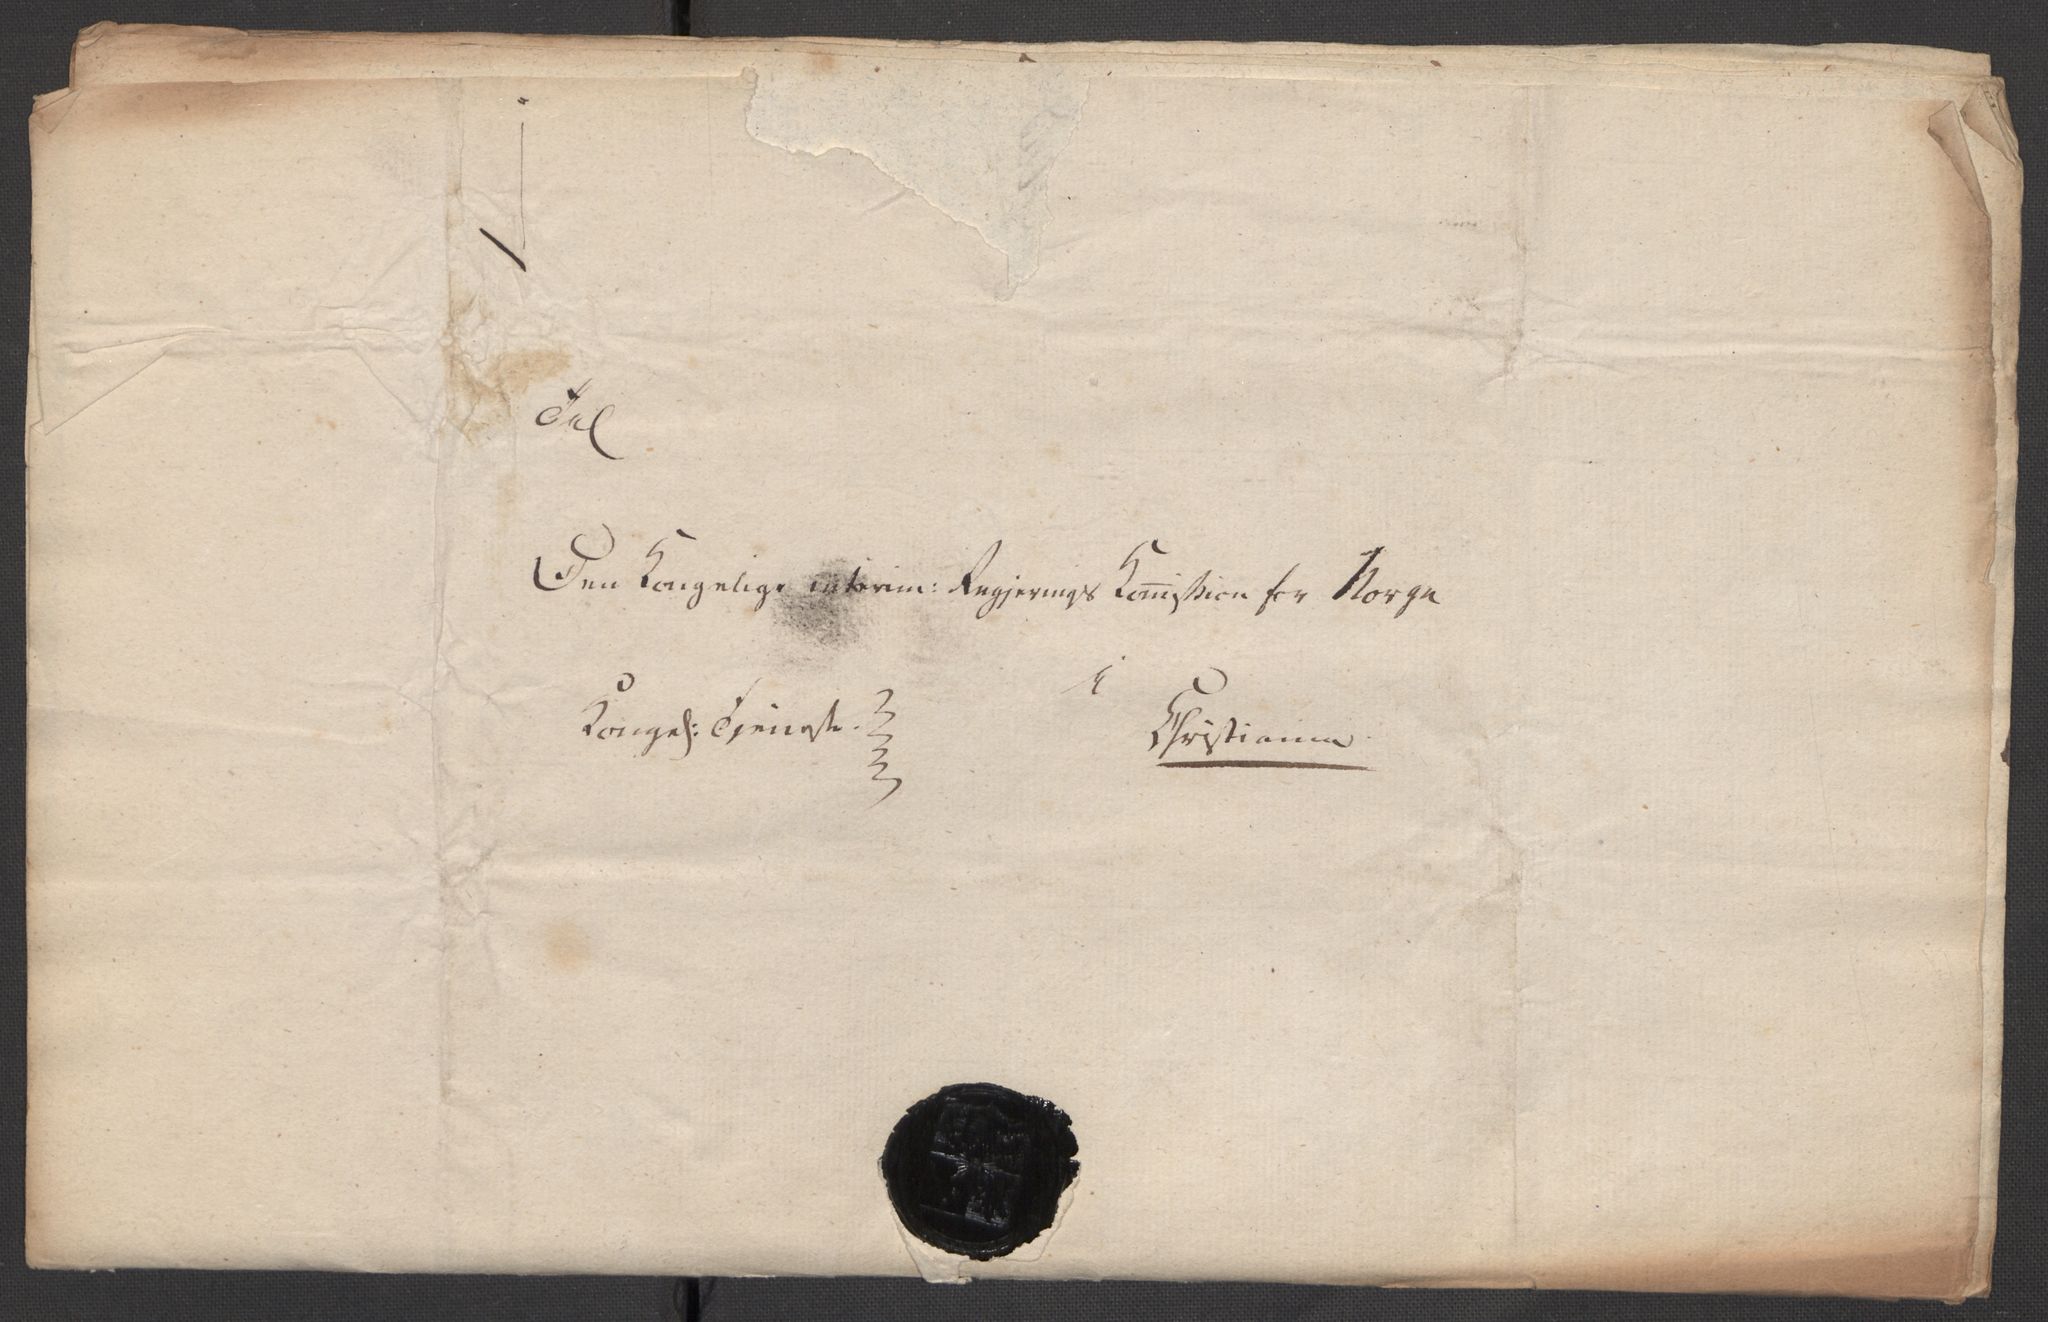 Til
Den Kongelige interim: Regjerings Kom̅ission for Norge
i
Kongel: Tjeneste. Christiania.